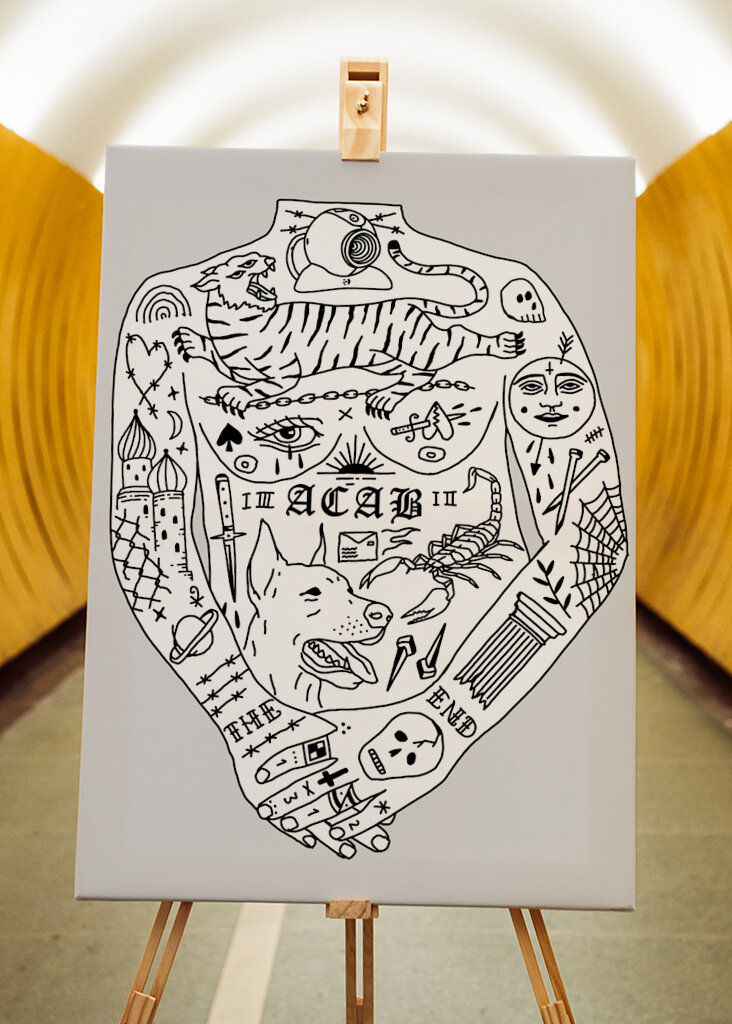 I III ACAB I II
THE
END
1
3
1
2